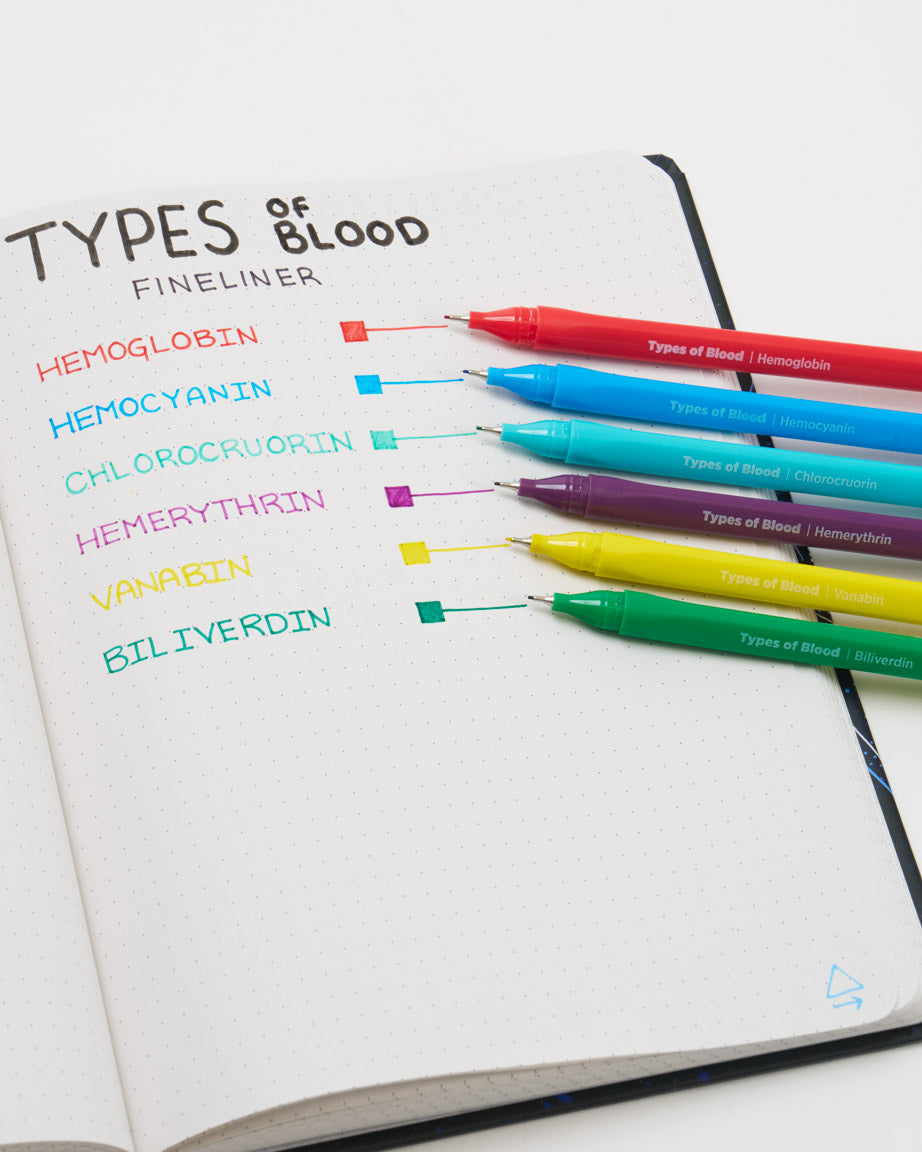 TYPES OF BLOOD
FINELINER
HEMOGLOBIN
HEMOCYANIN
CHLOROCRUORIN
HEMERYTHRIN
VANABIN
BILIVERDIN
Types of Blood | Hemoglobin
Types of Blood | Hemocyanin
Types of Blood | Chlorocruorin
Types of Blood | Hemerythrin
Types of Blood | Vanabin
Types of Blood | Biliverdin